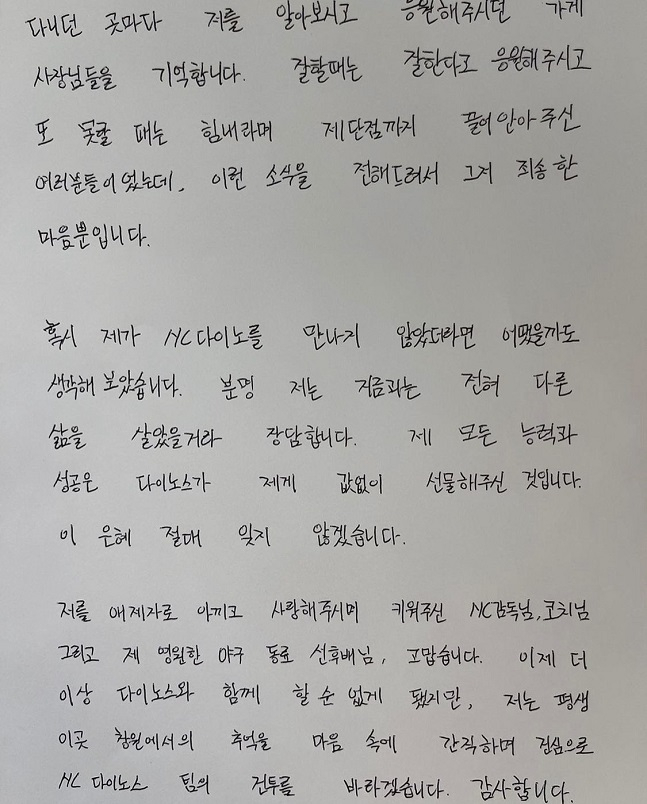 다니던 곳마다 저를 알아보시고 응원해주시던 가게
사장님들을 기억합니다. 잘할때는 잘한다고 응원해주시고
또 못할 때는 힘내라며 제단점까지 끌어안아 주신
여러분들이었는데, 이런 소식을 전해드려서 그저 죄송한
마음뿐입니다.
혹시 제가 NC다이노를 만나지 않았더라면 어땠을까도
생각해 보았습니다. 분명 저는 지금과는 전혀 다른
삶을 살았을거라 장담합니다. 제 모든 능력과
성공은 다이노스가 제게 값없이 선물해주신 것입니다.
이 은혜 절대 잊지 않겠습니다.
저를 애제자로 아끼고 사랑해주시며 키워주신 NC감독님,코치님
그리고 제 영원한 야구 동료 선후배님, 고맙습니다. 이제 더
이상 다이노스와 함께 할 순 없게 됐지만, 저는 평생
이곳 창원에서의 추억을 마음 속에 간직하며 진심으로
NC 다이노스 팀의 건투를 바라겠습니다. 감사합니다.